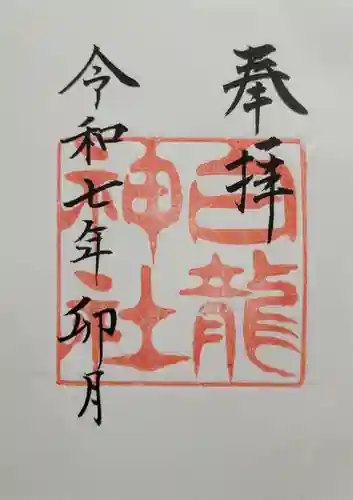 奉拝
白龍神社
令和七年卯月